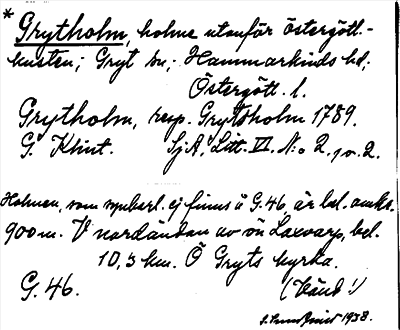 * Grytholm, holme utanför östergötl.-
kusten; Gryt sn; Hammarkinds hd;
Östergötl. l.
Grytholm, resp. Grytsholm 1789.
G. Klint. SjA, Litt. VI. N:o 2, 
Holmen, som uppenbarl. ej finns å G.46 är bel. omkr.
900 m. V nordändan av ön Laxvarp, bel.
10,3 km. Ö Gryts kyrka.
G. 46. (Känd!)
1938.